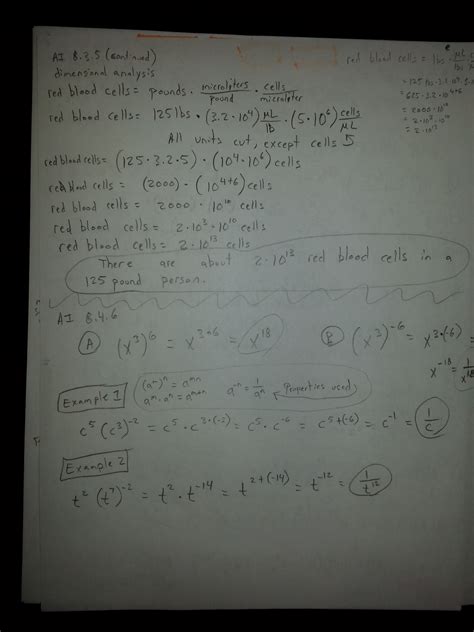 AI 8.3.5 (continued)
dimensional analysis
red blood cells = pounds · microliters/pound · cells/microliter
red blood cells = 125 lbs · (3.2·10⁴) μL/lb · (5·10⁶) cells/μL
All units cut, except cells
red blood cells = (125·3.2·5)·(10⁴·10⁶) cells
red blood cells = (2000)·(10⁴⁺⁶) cells
red blood cells = 2000 · 10¹⁰ cells
red blood cells = 2·10³·10¹⁰ cells
red blood cells = 2·10¹³ cells
There are about 2·10¹³ red blood cells in a
125 pound person.
red blood cells = lbs ·
= 2000·10¹⁰
= 2·10³·10¹⁰
= 2·10¹³
AI 8.4.6
A (x³)⁶ = x³·⁶ = x¹⁸
B (x³)⁻⁶ = x³·⁽⁻⁶⁾
x⁻¹⁸ = 1/x¹⁸
Example 1
(aᵐ)ⁿ = aᵐⁿ
aᵐ·aⁿ = aᵐ⁺ⁿ
a⁻ⁿ = 1/aⁿ
Properties used
c⁵(c³)⁻² = c⁵·c³·⁽⁻²⁾ = c⁵·c⁻⁶ = c⁵⁺⁽⁻⁶⁾ = c⁻¹ = 1/c
Example 2
t²(t⁷)⁻² = t²·t⁻¹⁴ = t²⁺⁽⁻¹⁴⁾ = t⁻¹² = 1/t¹²